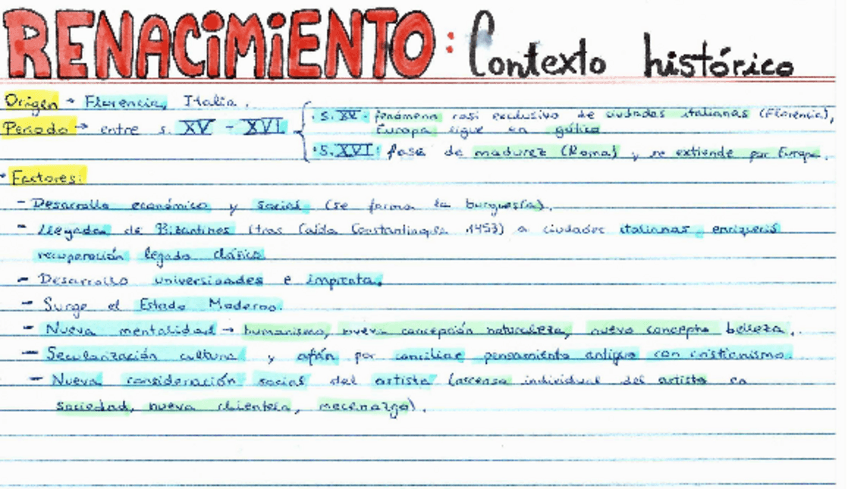 RENACIMIENTO: Contexto histórico
Origen → Florencia, Italia.
Periodo → entre s. XV - XVI
· s. XV · fenómeno casi exclusivo de ciudades italianas (Florencia),
Europa sigue en gótico
· S. XVI: fase de madurez (Roma) y se extiende por Europa.
· Factores:
- Desarrollo económico y social (se forma la burguesía).
- Llegada de Bizantinos (tras Caída Constantinopla 1453) a ciudades italianas enriqueció
recuperación legado clásico
- Desarrollo universidades e imprenta.
- Surge el Estado Moderno.
- Nueva mentalidad → humanismo, nueva concepción naturaleza, nuevo concepto belleza.
- Secularización cultura y afán por conciliar pensamiento antiguo con cristianismo.
- Nueva consideración social del artista (ascenso individual del artista en
sociedad, nueva clientela, mecenazgo).